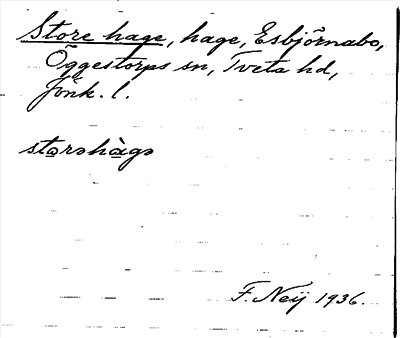 Store hage, hage, Esbjörnabo,
Öggestorps sn, Tveta hd,
Jönk. l.
sto̲rəhà̲gə
F. Neij 1936.